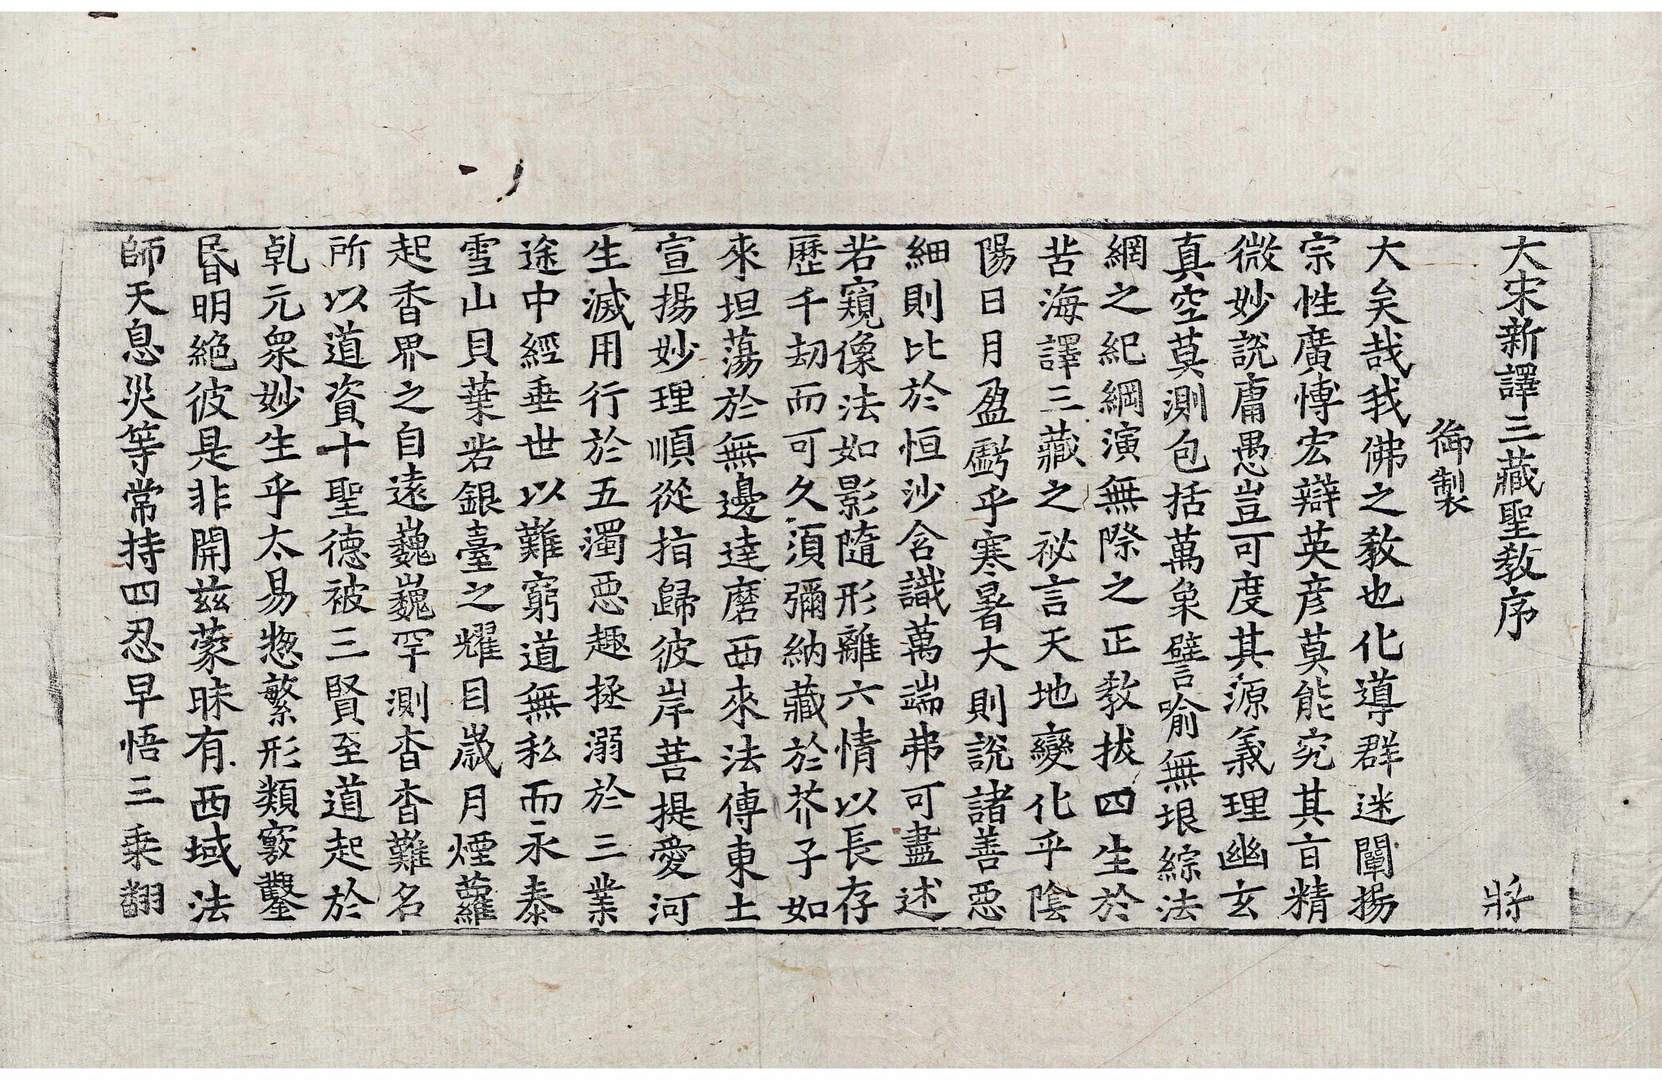 大宋新譯三藏聖教序 將
御製
大矣哉我佛之教也化導群迷闡揚
宗性廣愽宏辯英彥莫能究其旨精
微妙說庸愚豈可度其源義理幽玄
真空莫測包括萬象譬喻無垠綜法
網之紀綱演無際之正教拔四生於
苦海譯三藏之祕言天地變化乎陰
陽日月盈虧乎寒暑大則說諸善惡
細則比於恒沙含識萬端弗可盡述
若窺像法如影隨形離六情以長存
歷千劫而可久須彌納藏於芥子如
來坦蕩於無邊達磨西來法傳東土
宣揚妙理順從指歸彼岸菩提愛河
生滅用行於五濁惡趣拯溺於三業
途中經垂世以難窮道無私而永泰
雪山貝葉若銀臺之耀目歲月煙蘿
起香界之自遠巍巍罕測杳杳難名
所以道資十聖德被三賢至道起於
乹元衆妙生乎太易惣繁形類竅鑿
昬明絕彼是非開兹蒙昧有西域法
師天息災等常持四忍早悟三乘翻